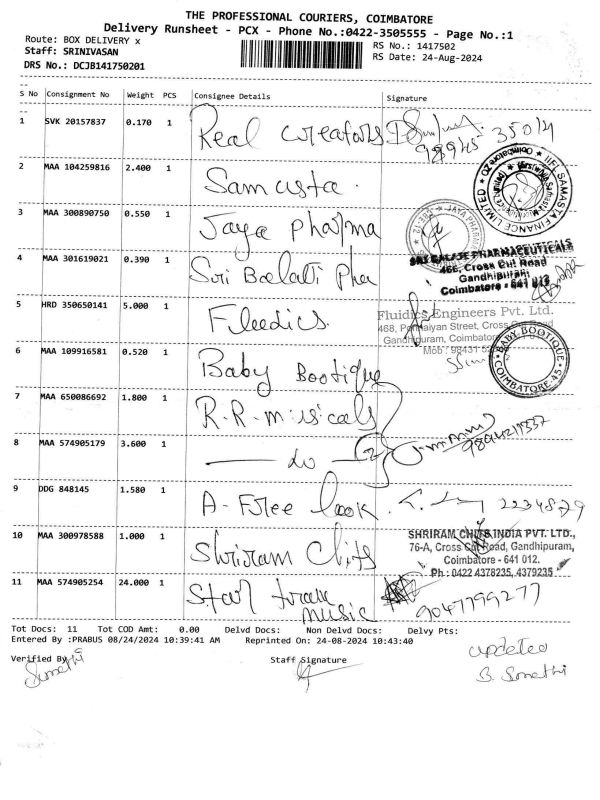 THE PROFESSIONAL COURIERS, COIMBATORE
Delivery Runsheet - PCX - Phone No.:0422-3505555 - Page No.:1
Route: BOX DELIVERY x
RS No.: 1417502
Staff: SRINIVASAN
RS Date: 24-Aug-2024
DRS No.: DCJB141750201
S No Consignment No Weight PCS Consignee Details Signature
1 SVK 20157837 0.170 1 Real creators
2 MAA 104259816 2.400 1 Samasta.
IIFL SAMASTA FINANCE LIMITED
3 MAA 300890750 0.550 1 Jaya Pharma
4 MAA 301619021 0.390 1 Sri Balaji Pha
SRI BALAJI PHARMACEUTICALS
466, Cross Cut Road
Gandhipuram
Coimbatore - 641 012
5 HRD 350650141 5.000 1 Fluidics.
Fluidics Engineers Pvt. Ltd.
Gandhipuram, Coimbatore
6 MAA 109916581 0.520 1 Baby Bootique
BABY BOOTIQUE
COIMBATORE-45
7 MAA 650086692 1.800 1 R.R. musicals
8 MAA 574905179 3.600 1 do
9 DDG 848145 1.580 1 A-Free look
10 MAA 300978588 1.000 1 Shriram Chits
SHRIRAM CHITS INDIA PVT. LTD.,
76-A, Cross Cut Road, Gandhipuram,
Coimbatore - 641 012.
Ph : 0422 4378235, 4379235
11 MAA 574905254 24.000 1 Star track music 9047799277
Tot Docs: 11 Tot COD Amt: 0.00 Delvd Docs: Non Delvd Docs: Delvy Pts:
Entered By :PRABUS 08/24/2024 10:39:41 AM Reprinted On: 24-08-2024 10:43:40
Verified By Staff Signature
Sumathi
updated
S. Sumathi